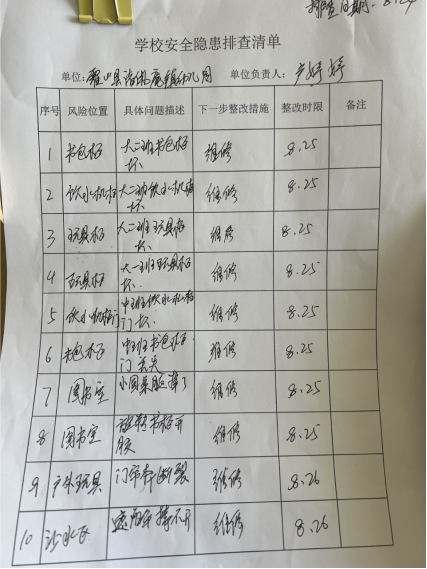 排查日期：8.24
学校安全隐患排查清单
单位：霍山县 幼儿园 单位负责人：卢婷婷
序号 风险位置 具体问题描述 下一步整改措施 整改时限 备注
1 书包柜 大二班书包柜坏 维修 8.25
2 饮水机柜 大二班饮水机 坏 维修 8.25
3 玩具柜 大二班玩具柜坏 维修 8.25
4 玩具柜 大一班玩具柜坏 维修 8.25
5 饮水机柜门 中班饮水机柜门坏 维修 8.25
6 书包柜 中班书包柜门丢失 维修 8.25
7 图书室 小圆桌腿掉了 维修 8.25
8 图书室 书柜开胶 维修 8.25
9 户外玩具 断裂 维修 8.26
10 沙水区 遮阳伞撑不开 维修 8.26